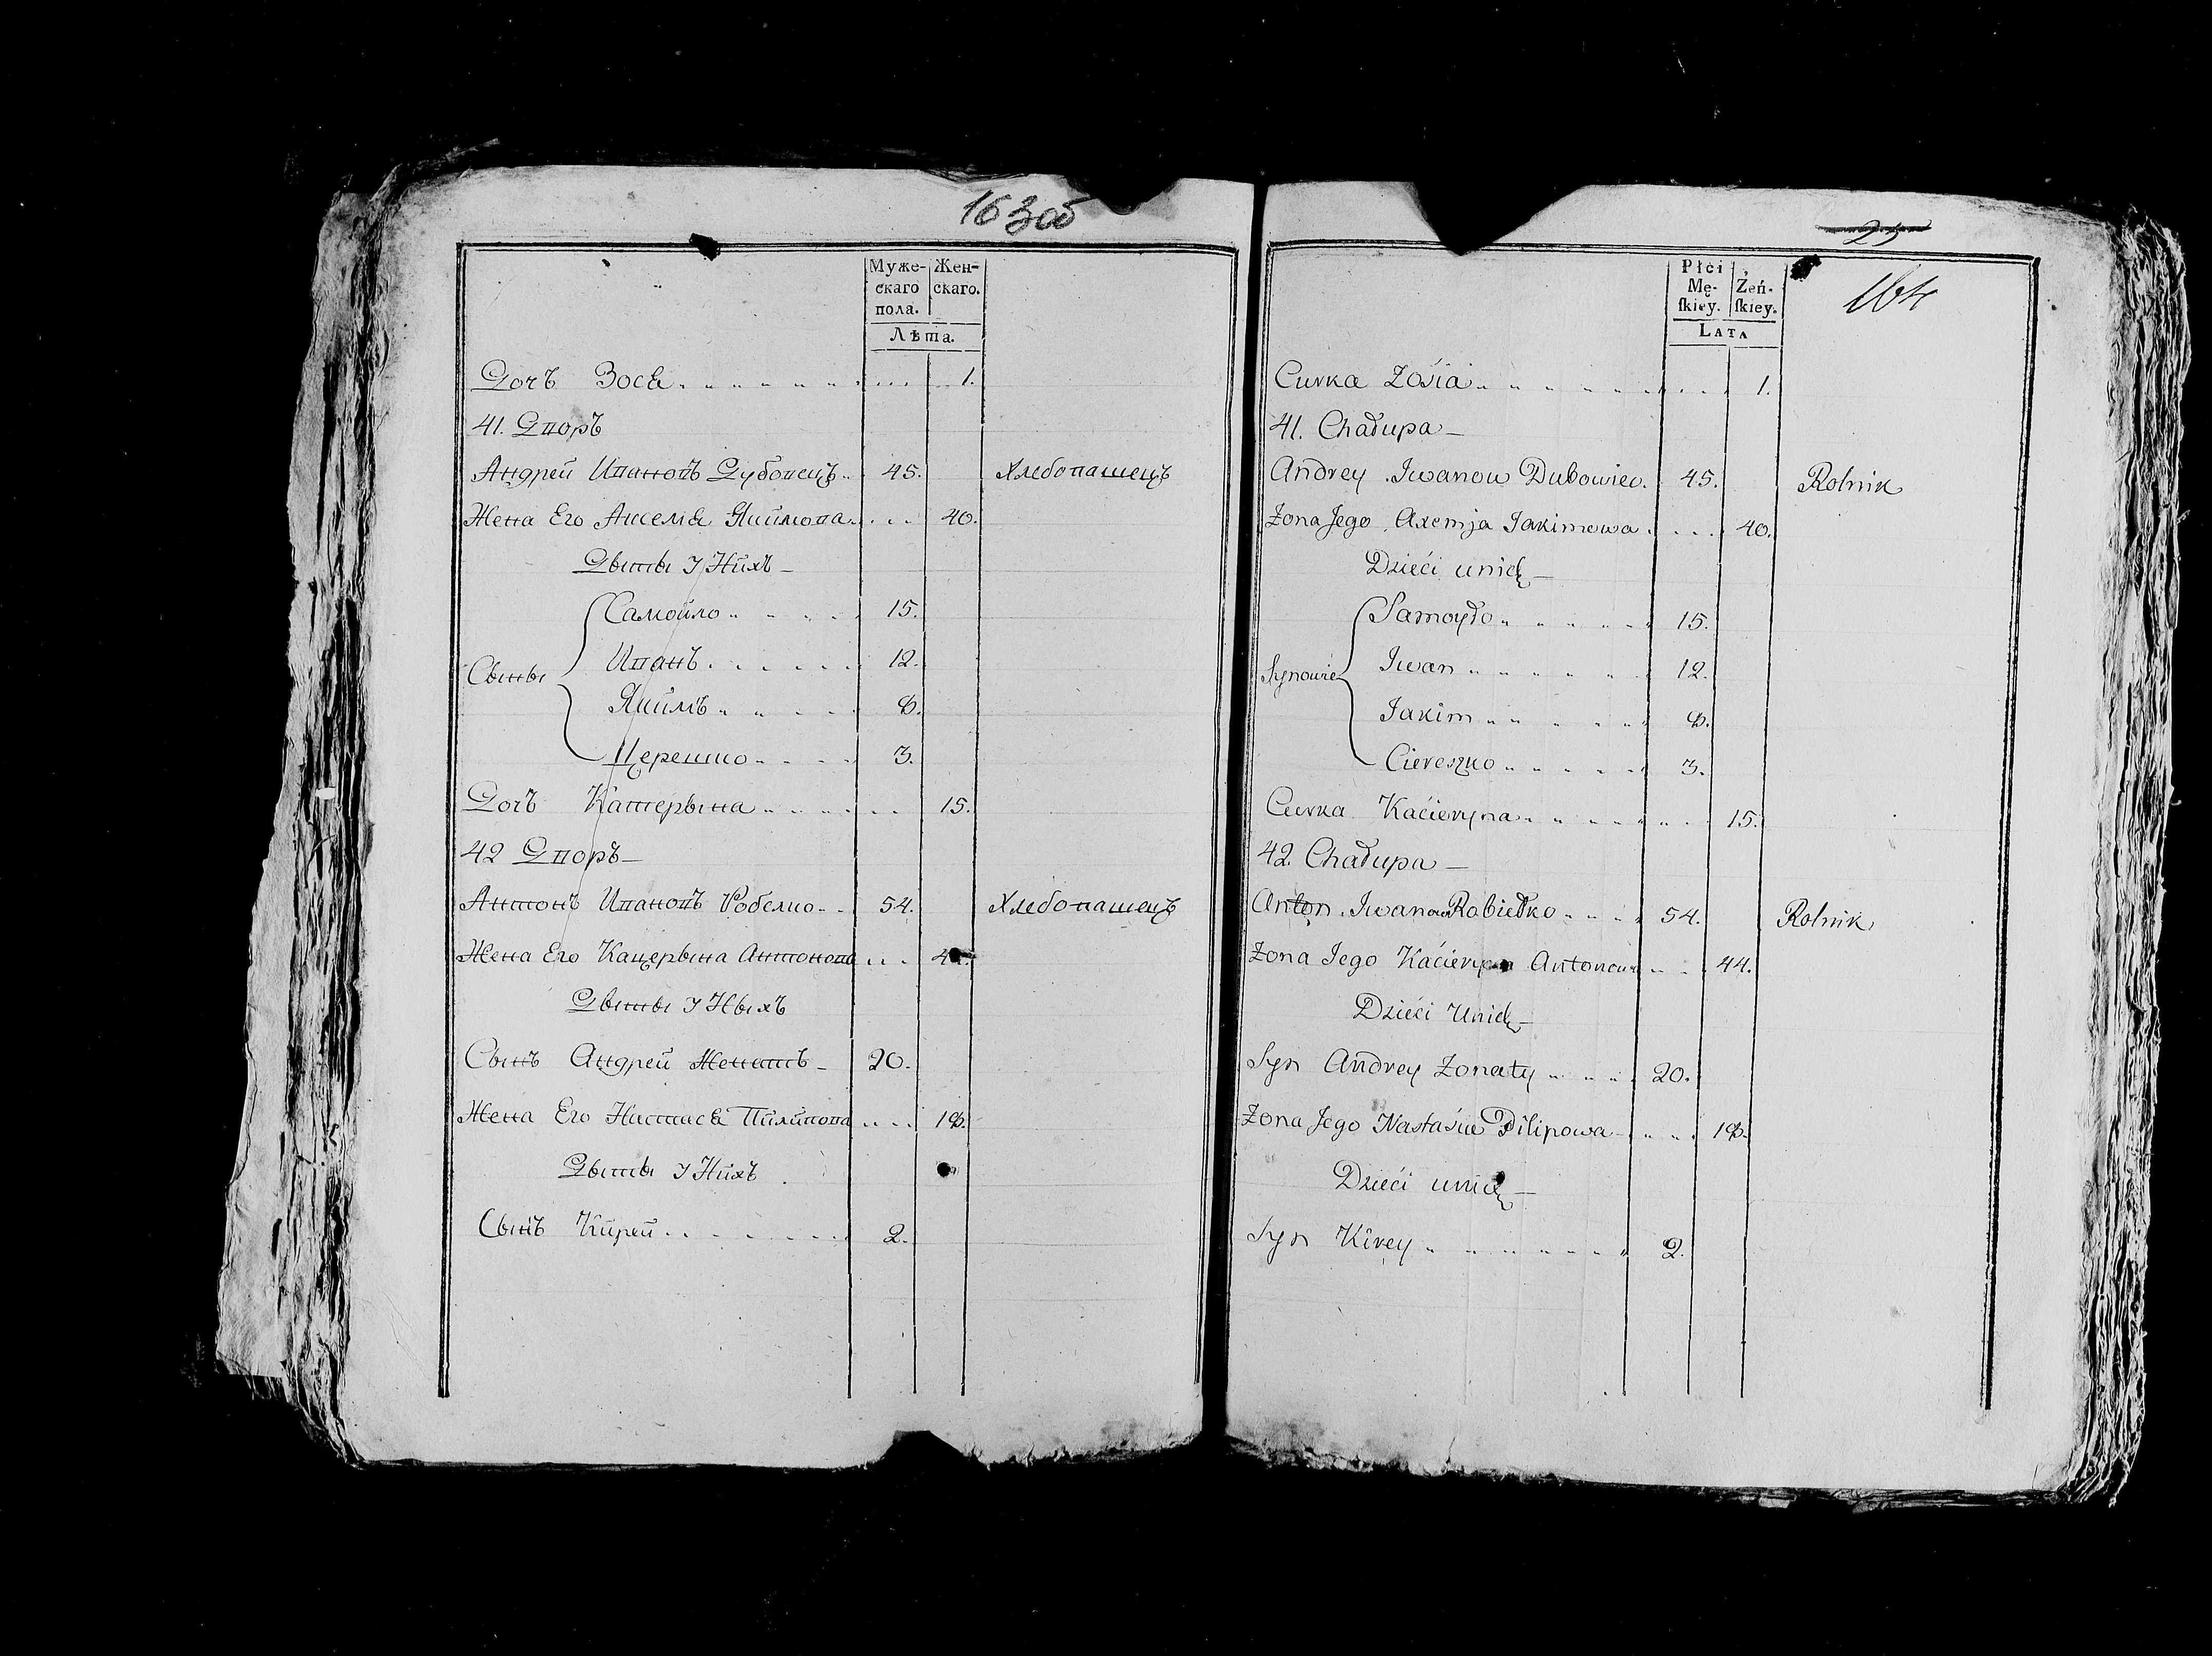 163об
Муже-
скаго
пола.
Жен-
скаго.
Лѣта.
Дочъ Зося 1.
41. Дворъ
Андрей Ивановъ Дубовецъ 45. Хлебопашецъ
Жена Его Аксемя Якимова 40.
Дыты у Нихъ
Сыны
Самойло 15.
Иванъ 12.
Якимъ 8.
Церешко 3.
Дочъ Катерына 15.
42 Дворъ
Антонъ Ивановъ Робелко 54. Хлебопашецъ
Жена Его Кацерына Антонова
Дыты у Ныхъ
Сынъ Андрей Женатъ 20.
Жена Его Настася Пилипова 18.
Дыты у Нихъ
Сынъ Кирей 2.
25
164
Płci
Mę-
ſkiey.
Żeń-
ſkiey.
LATA
Curka Zośia 1.
41. Chałupa
Andrey Iwanow Dubowiec 45. Rolnik
Żona Jego Axemja Jakimowa 40.
Dzieći unich
Synowie
Samoyło 15.
Iwan 12.
Jakim 8.
Ciereszko 3.
Curka Kaćieryna 15.
42. Chałupa
Anton Iwanow Robiełko 54. Rolnik
Żona Jego Kaćieryna Antonowa 44.
Dzieći Unich
Syn Andrey Żonaty 20.
Żona Jego Nastaśia Pilipowa 18.
Dzieći unich
Syn Kirey 2.